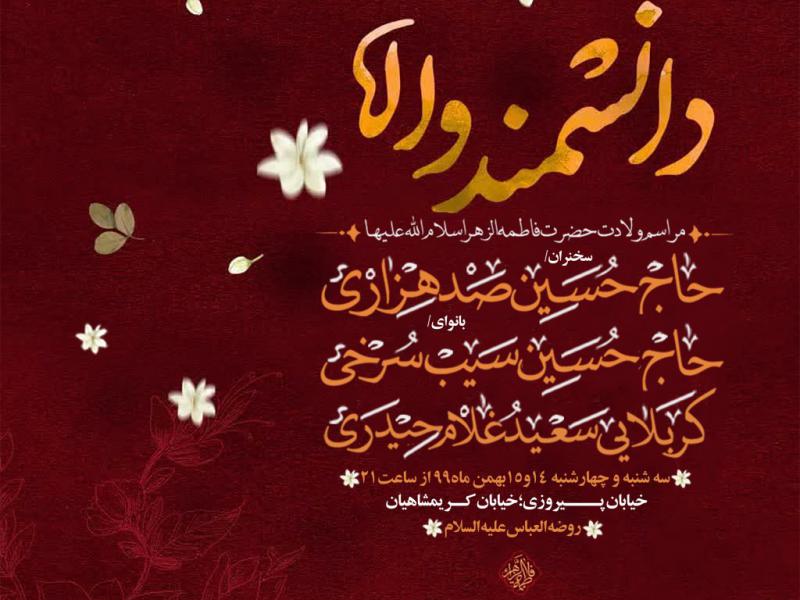 دانشمند والا
مراسم ولادت حضرت فاطمه الزهرا سلام الله علیها
سخنران/
حاج حُسَین صَدهِزاری
بانوای/
حاج حُسَین سَیب سُرخی
کَربَلایی سَعیدُ غُلام حِیدَری
سه شنبه و چهارشنبه ۱۴ و ۱۵ بهمن ماه ۹۹ از ساعت ۲۱
خیابان پیروزی؛ خیابان کریمشاهیان
روضه العباس علیه السلام